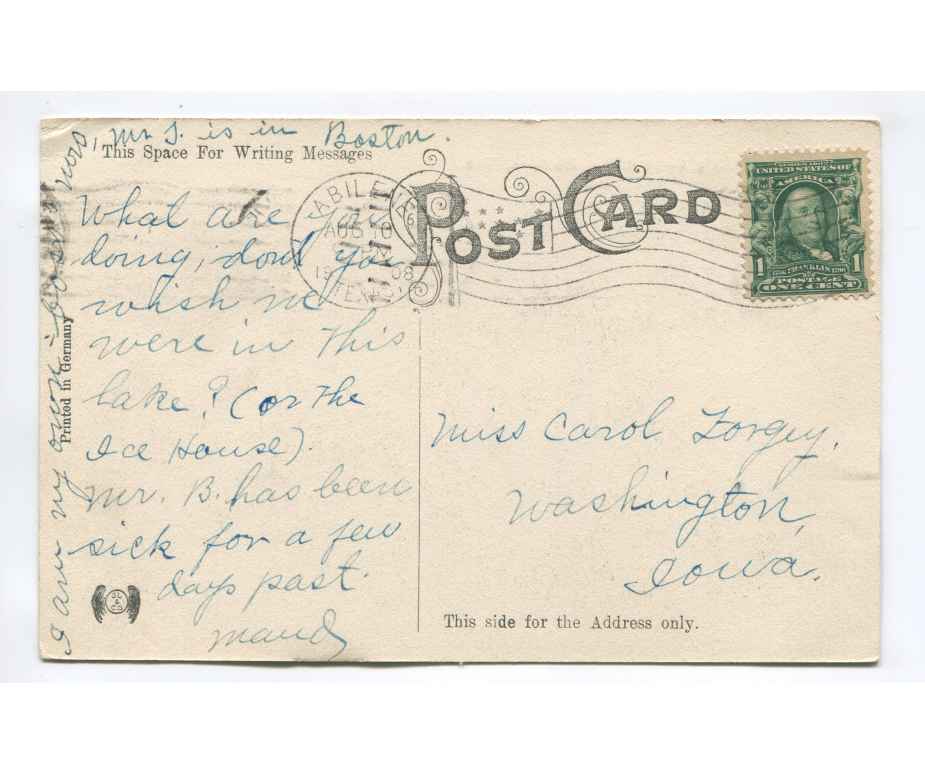 Mr S. is in Boston.
This Space For Writing Messages
What are you
doing, dont you
whish we
were in this
lake? (or the
Ice House).
Mr. B. has been
sick for a few
days past.
Maud
I am my own boss now,
Printed in Germany
ABILENE
AUG 10
1908
TEX.
POST CARD
UNITED STATES OF
AMERICA
FRANKLIN
POSTAGE
1 ONE CENT 1
Miss Carol Forgey,
Washington,
Iowa.
This side for the Address only.